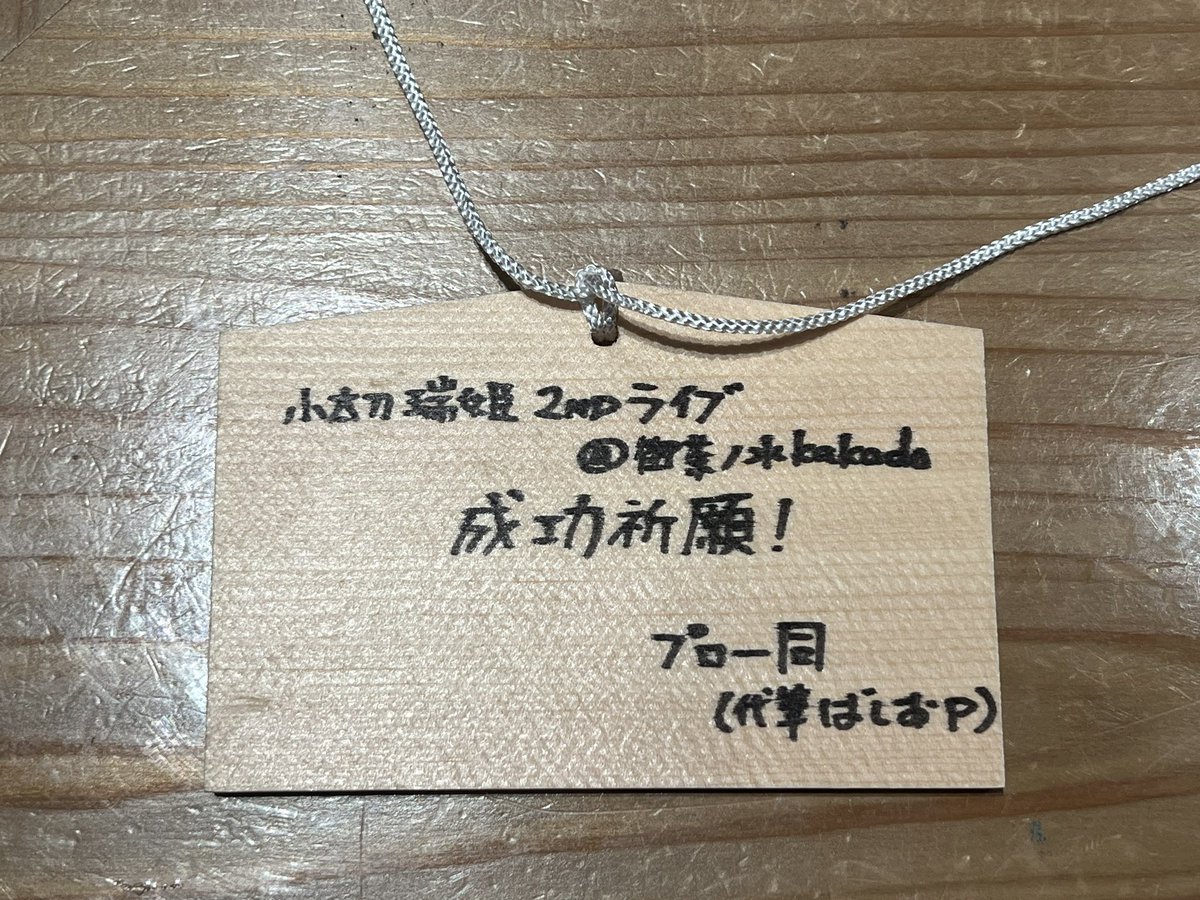 小太刀瑞姫 2NDライブ
@御茶ノ水kakado
成功祈願!
プロ一同
(代筆ばしおP)